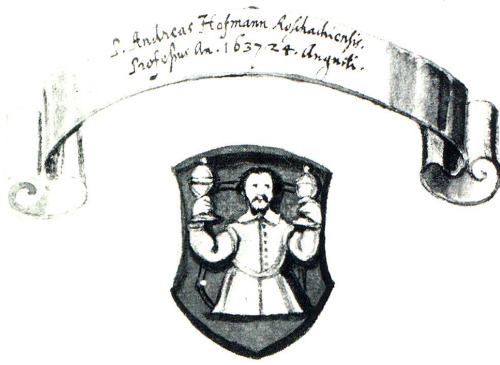 P. Andreas Hofmann Roschachiensis.
Professus An. 1637 24. Augusti.